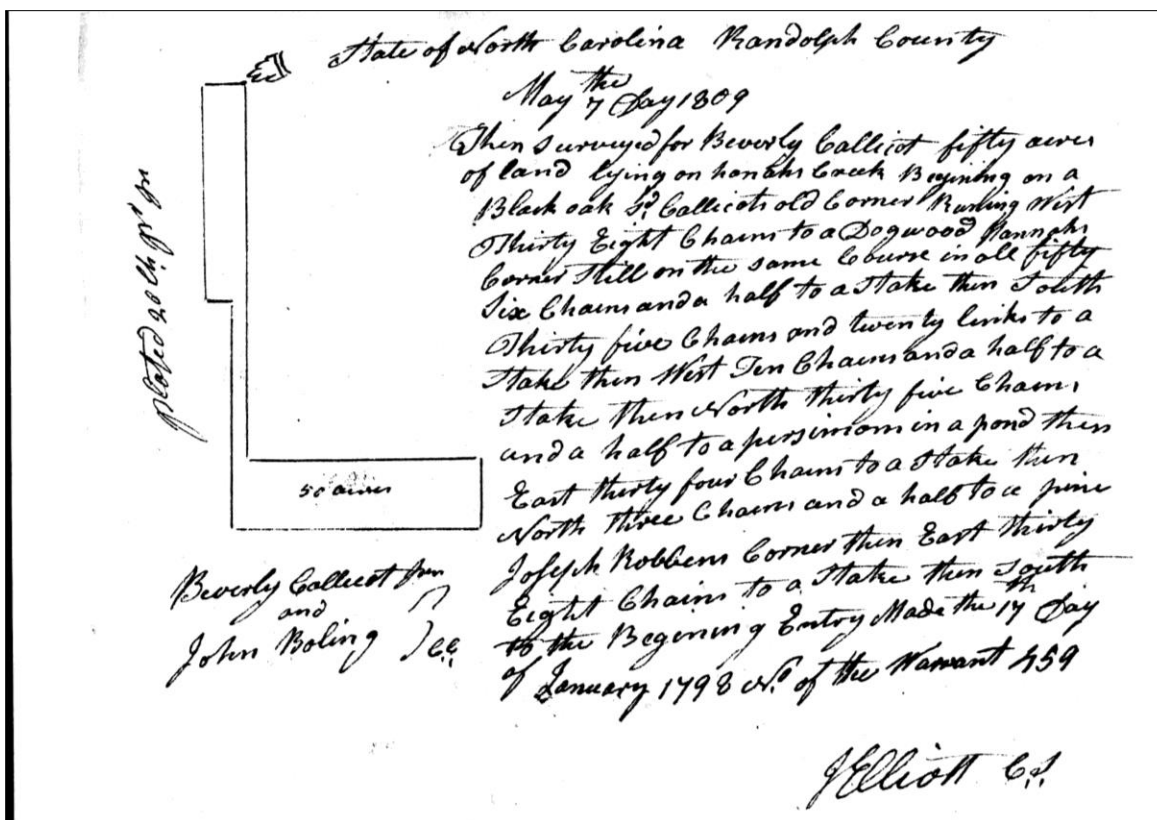 State of North Carolina Randolph County
May the 7 Day 1809
Then Surveyed for Beverly Callicot fifty acres
of land lying on hanahs Creek Begining on a
Black oak Sd. Callicots old Corner Runing West
Thirty Eight Chains to a Dogwood Hannahs
Corner Still on the same Course in all fifty
Six Chains and a half to a Stake then South
Thirty five Chains and twenty links to a
Stake then West Ten Chains and a half to a
Stake then North thirty five Chains
and a half to a persimom in a pond then
East thirty four Chains to a Stake then
North three Chains and a half to a pine
Joseph Robbens Corner then East thirty
Eight Chains to a Stake then South
to the Begening Entry Made the 17th Day
of January 1798 No. of the Warrant 459
J Elliott C.S.
ploted 20 Ch. pr. In
50 acres
Beverly Callicot Jun
and
John Boling